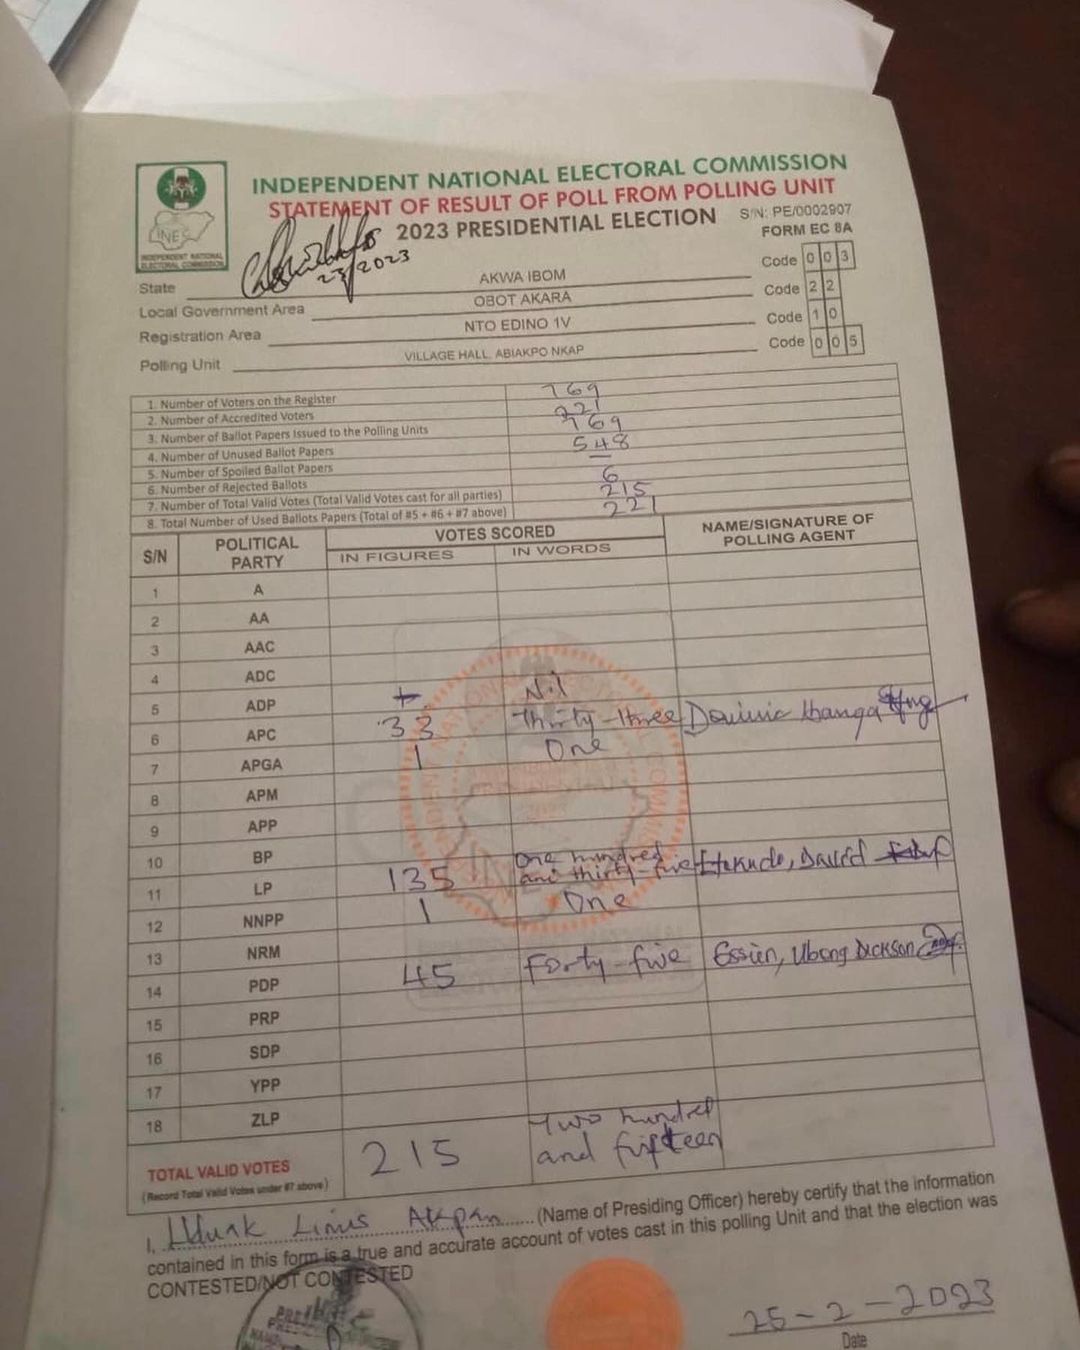 INDEPENDENT NATIONAL ELECTORAL COMMISSION
STATEMENT OF RESULT OF POLL FROM POLLING UNIT
2023 PRESIDENTIAL ELECTION
S/N: PE/0002907
FORM EC 8A
INEC
INDEPENDENT NATIONAL
ELECTORAL COMMISSION
23/2023
State AKWA IBOM Code 0 0 3
Local Government Area OBOT AKARA Code 2 2
Registration Area NTO EDINO 1V Code 1 0
Polling Unit VILLAGE HALL, ABIAKPO NKAP Code 0 0 5
1. Number of Voters on the Register 769
2. Number of Accredited Voters 221
3. Number of Ballot Papers Issued to the Polling Units 769
4. Number of Unused Ballot Papers 548
5. Number of Spoiled Ballot Papers —
6. Number of Rejected Ballots 6
7. Number of Total Valid Votes (Total Valid Votes cast for all parties) 215
8. Total Number of Used Ballots Papers (Total of #5 + #6 + #7 above) 221
S/N POLITICAL PARTY VOTES SCORED NAME/SIGNATURE OF POLLING AGENT
IN FIGURES IN WORDS
1 A
2 AA
3 AAC
4 ADC
5 ADP Nil
6 APC 33 Thirty-three Dominic
7 APGA 1 One
8 APM
9 APP
10 BP
11 LP 135 One hundred and thirty-five David
12 NNPP 1 One
13 NRM
14 PDP 45 Forty-five Essien, Ubong Dickson
15 PRP
16 SDP
17 YPP
18 ZLP
TOTAL VALID VOTES 215 Two hundred and fifteen
(Record Total Valid Votes under #7 above)
I, Uduak Linus Akpan (Name of Presiding Officer) hereby certify that the information
contained in this form is a true and accurate account of votes cast in this polling Unit and that the election was
CONTESTED/NOT CONTESTED
25-2-2023
Date